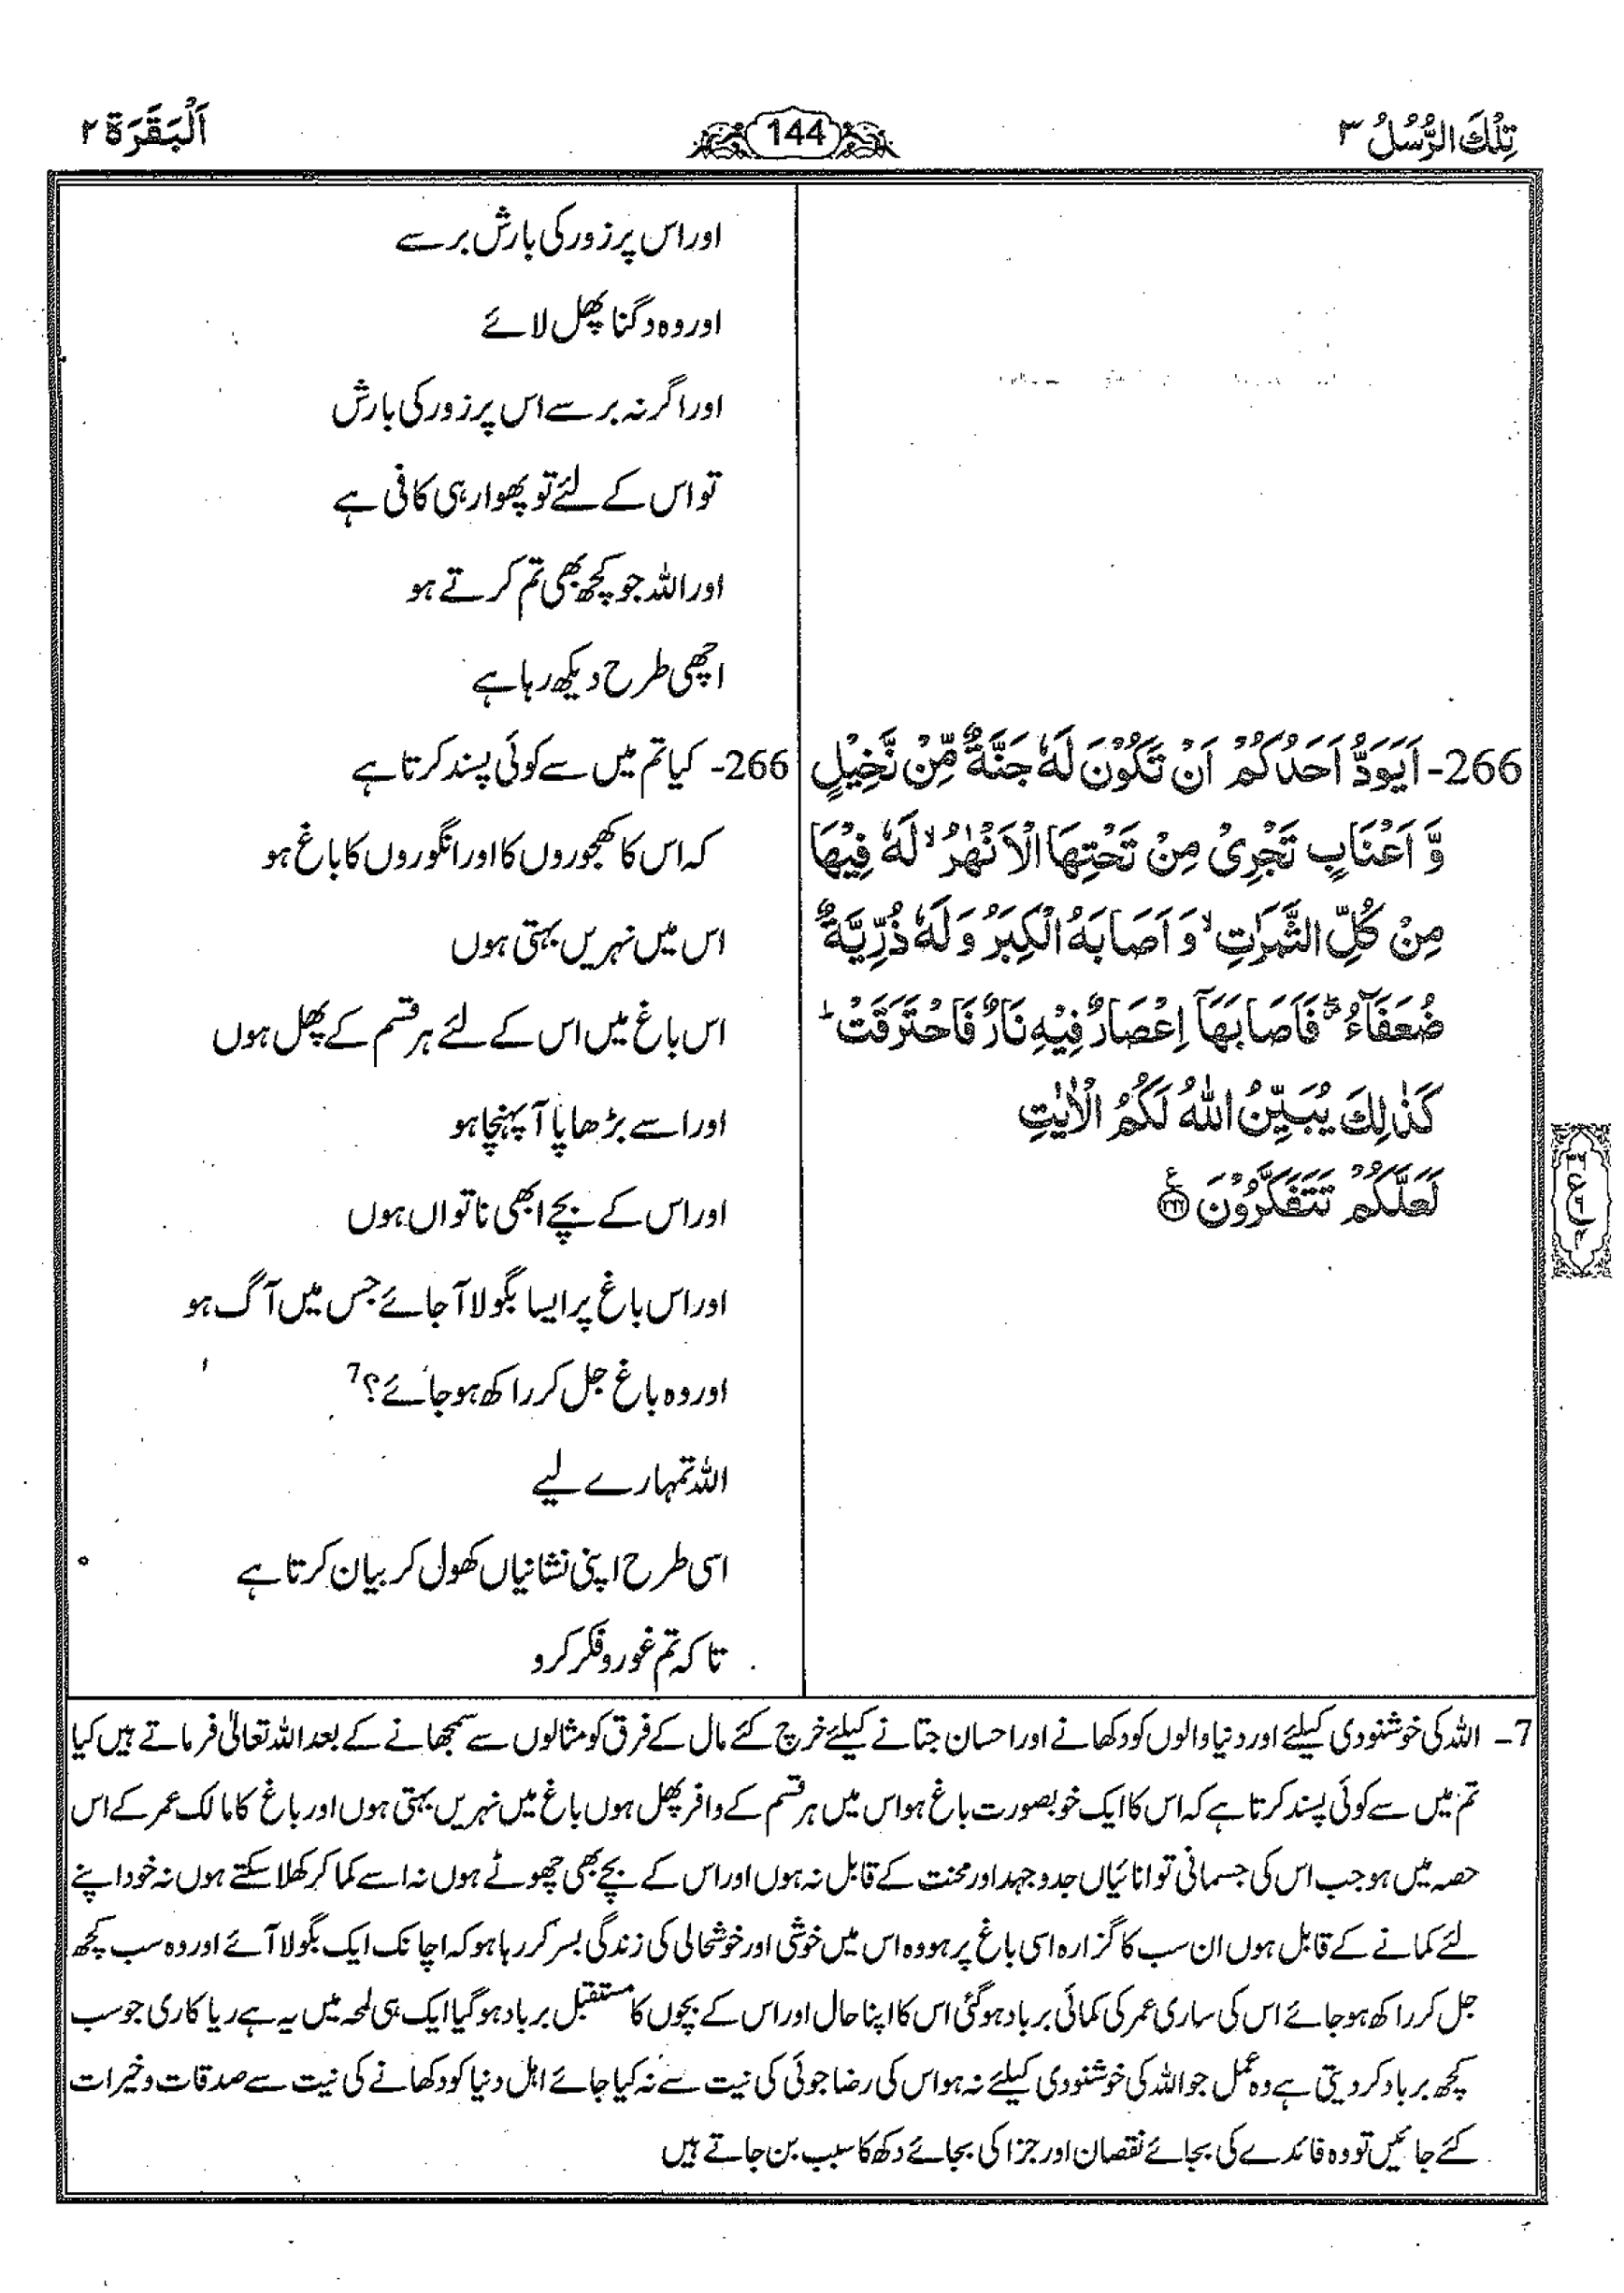 تِلْكَ الرُّسُلُ ٣
144
اَلْبَقَرَة ٢
اور اس پر زور کی بارش برسے
اور وہ دگنا پھل لائے
اور اگر نہ برسے اس پر زور کی بارش
تو اس کے لئے تو پھوار ہی کافی ہے
اور اللہ جو کچھ بھی تم کرتے ہو
اچھی طرح دیکھ رہا ہے
266- اَيَوَدُّ اَحَدُكُمْ اَنْ تَكُوْنَ لَهٗ جَنَّةٌ مِّنْ نَّخِيْلٍ
وَّ اَعْنَابٍ تَجْرِىْ مِنْ تَحْتِهَا الْاَنْهٰرُ ۙ لَهٗ فِيْهَا
مِنْ كُلِّ الثَّمَرٰتِ ۙ وَ اَصَابَهُ الْكِبَرُ وَ لَهٗ ذُرِّيَّةٌ
ضُعَفَآءُ ۖ فَاَصَابَهَاۤ اِعْصَارٌ فِيْهِ نَارٌ فَاحْتَرَقَتْ ؕ
كَذٰلِكَ يُبَيِّنُ اللّٰهُ لَكُمُ الْاٰيٰتِ
لَعَلَّكُمْ تَتَفَكَّرُوْنَ ﴿٢٦٦﴾ ع
266- کیا تم میں سے کوئی پسند کرتا ہے
کہ اس کا کھجوروں کا اور انگوروں کا باغ ہو
اس میں نہریں بہتی ہوں
اس باغ میں اس کے لئے ہر قسم کے پھل ہوں
اور اسے بڑھاپا آ پہنچا ہو
اور اس کے بچے ابھی ناتواں ہوں
اور اس باغ پر ایسا بگولا آ جائے جس میں آگ ہو
اور وہ باغ جل کر راکھ ہو جائے؟7
اللہ تمہارے لیے
اسی طرح اپنی نشانیاں کھول کر بیان کرتا ہے
تا کہ تم غور و فکر کرو
7- اللہ کی خوشنودی کیلئے اور دنیا والوں کو دکھانے اور احسان جتانے کیلئے خرچ کئے مال کے فرق کو مثالوں سے سمجھانے کے بعد اللہ تعالیٰ فرماتے ہیں کیا
تم میں سے کوئی پسند کرتا ہے کہ اس کا ایک خوبصورت باغ ہو اس میں ہر قسم کے وافر پھل ہوں باغ میں نہریں بہتی ہوں اور باغ کا مالک عمر کے اس
حصہ میں ہو جب اس کی جسمانی توانائیاں جدوجہد اور محنت کے قابل نہ ہوں اور اس کے بچے بھی چھوٹے ہوں نہ اسے کما کر کھلا سکتے ہوں نہ خود اپنے
لئے کمانے کے قابل ہوں ان سب کا گزارہ اسی باغ پر ہو وہ اس میں خوشی اور خوشحالی کی زندگی بسر کر رہا ہو کہ اچانک ایک بگولا آئے اور وہ سب کچھ
جل کر راکھ ہو جائے اس کی ساری عمر کی کمائی برباد ہو گئی اس کا اپنا حال اور اس کے بچوں کا مستقبل برباد ہو گیا ایک ہی لمحہ میں یہ ہے ریا کاری جو سب
کچھ برباد کر دیتی ہے وہ عمل جو اللہ کی خوشنودی کیلئے نہ ہو اس کی رضا جوئی کی نیت سے نہ کیا جائے اہل دنیا کو دکھانے کی نیت سے صدقات و خیرات
کئے جائیں تو وہ فائدے کی بجائے نقصان اور جزا کی بجائے دکھ کا سبب بن جاتے ہیں